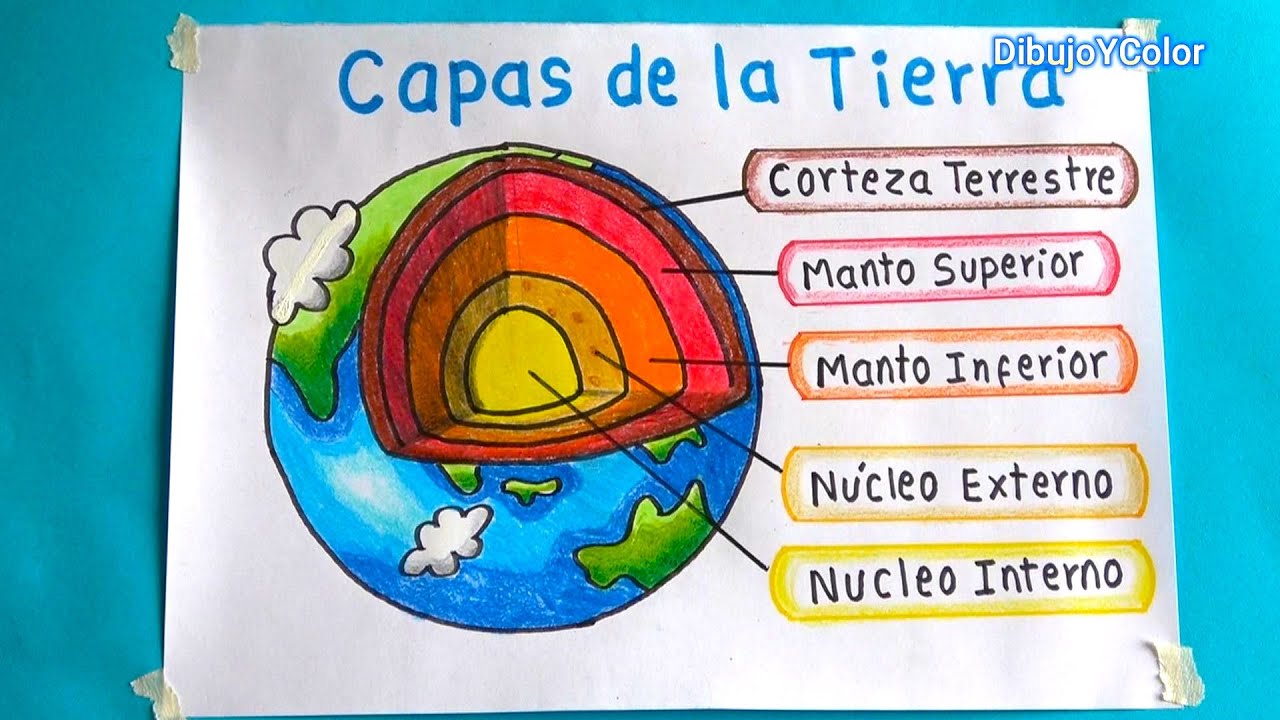 DibujoYColor
Capas de la Tierra
Corteza Terrestre
Manto Superior
Manto Inferior
Núcleo Externo
Nucleo Interno